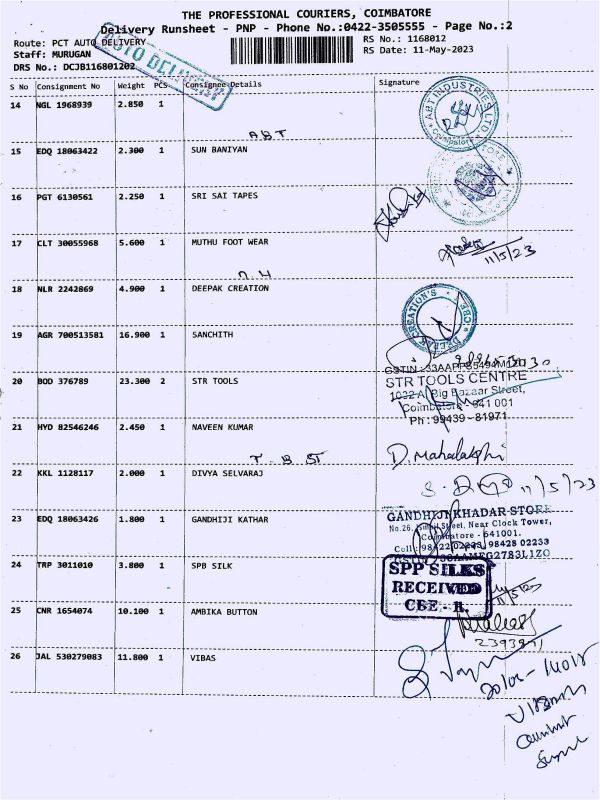 THE PROFESSIONAL COURIERS, COIMBATORE
Delivery Runsheet - PNP - Phone No.:0422-3505555 - Page No.:2
Route: PCT AUTO DELIVERY
RS No.: 1168012
Staff: MURUGAN
RS Date: 11-May-2023
DRS No.: DCJB116801202
AUTO DELIVERY
S No Consignment No Weight PCS Consignee Details Signature
14 NGL 1968939 2.850 1
ABT INDUSTRIES LTD
ABT
15 EDQ 18063422 2.300 1 SUN BANIYAN
16 PGT 6130561 2.250 1 SRI SAI TAPES
17 CLT 30055968 5.600 1 MUTHU FOOT WEAR
11/5/23
18 NLR 2242869 4.900 1 DEEPAK CREATION
DEEPAK CREATION'S CBE
19 AGR 700513581 16.900 1 SANCHITH
20 BOD 376789 23.300 2 STR TOOLS
STR TOOLS CENTRE
Big Bazaar Street,
Coimbatore - 641 001
Ph : 99439 - 81971
21 HYD 82546246 2.450 1 NAVEEN KUMAR
D. Mahalakshi
22 KKL 1128117 2.000 1 DIVYA SELVARAJ
11/5/23
23 EDQ 18063426 1.800 1 GANDHIJI KATHAR
GANDHIJI KHADAR STORE
Street, Near Clock Tower,
Coimbatore - 641001.
Cell : 98422 02233, 98428 02233
24 TRP 3011010 3.800 1 SPB SILK
SPP SILKS
RECEIVED
CBE - 1.
25 CNR 1654074 10.100 1 AMBIKA BUTTON
26 JAL 530279083 11.800 1 VIBAS